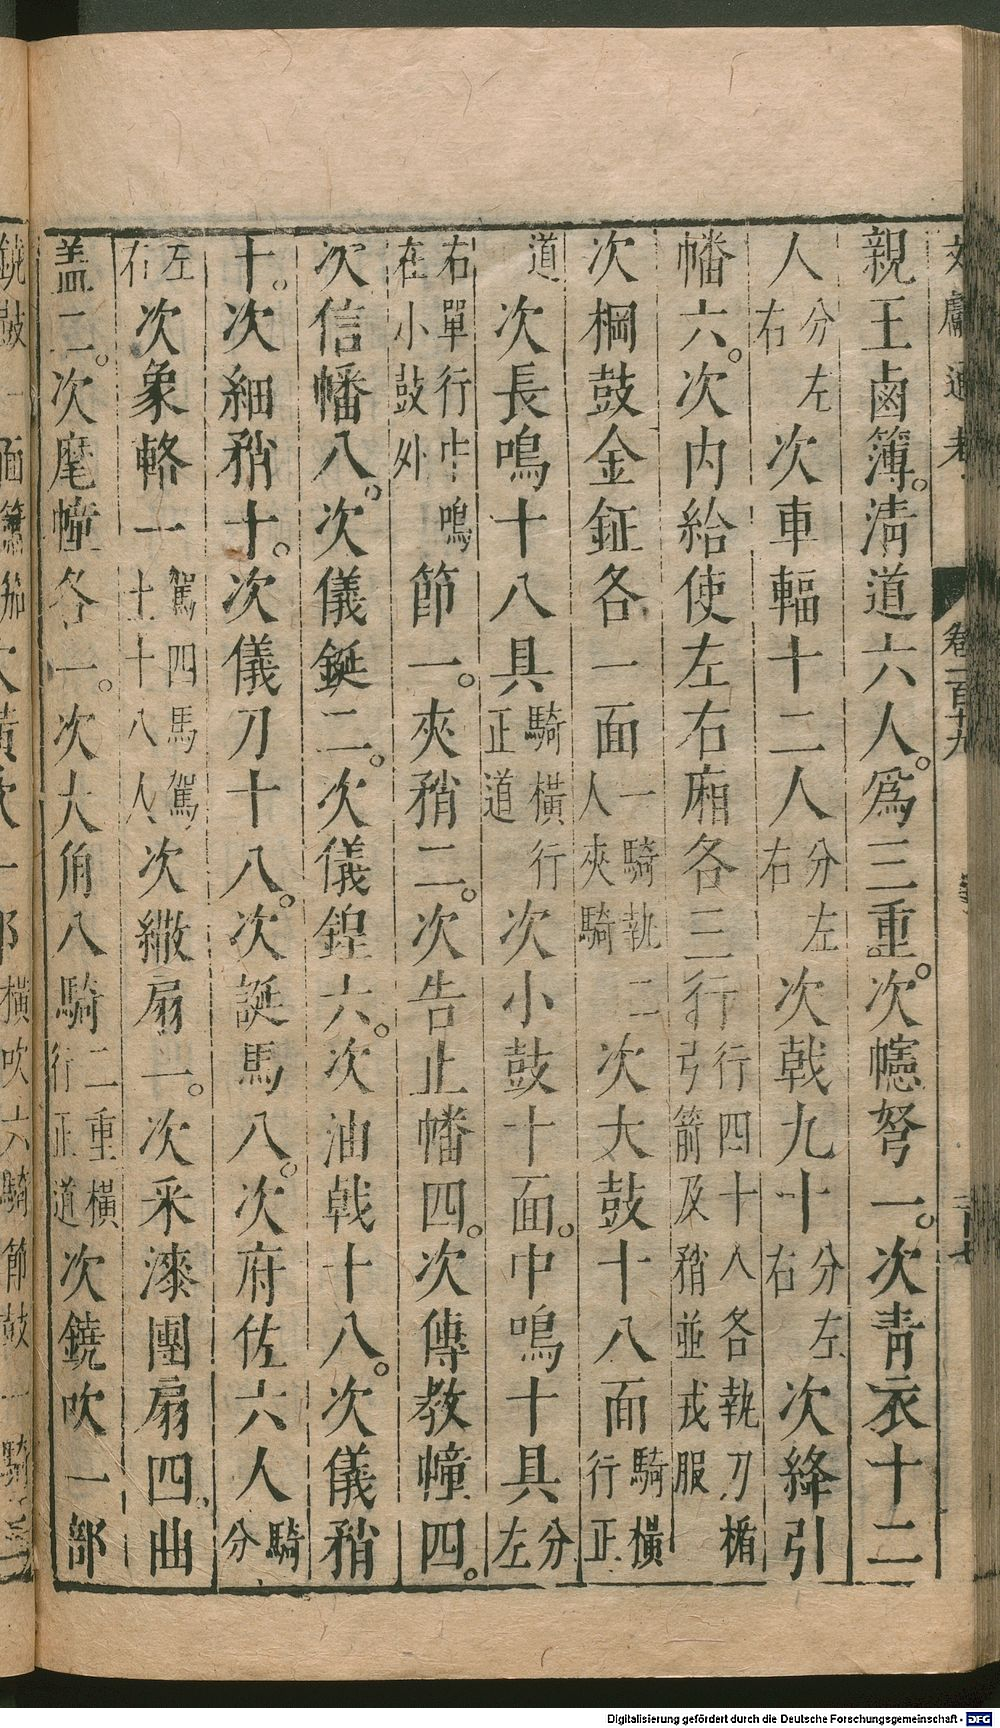 文獻通考 卷一百十九
親王鹵簿。清道六人。爲三重。次幰弩一。次青衣十二
人分左右次車輻十二人分左右次戟九十分左右次絳引
幡六。次内給使左右廂各三行行四十八各執刀楯弓箭及矟並戎服
次棡鼓金鉦各一面一騎執二人夾騎次大鼓十八面騎橫行正
道次長鳴十八具騎橫行正道次小鼓十面。中鳴十具分左
右單行中鳴在小鼓外節一。夾矟二。次告止幡四。次傳教幢四。
次信幡八。次儀鋋二。次儀鍠六。次油戟十八。次儀矟
十。次細矟十。次儀刀十八。次誕馬八。次府佐六人騎分
左右次象輅一駕四馬駕士十八人次繖扇一。次采漆團扇四、曲
盖二。次麾幢各一。次大角八騎二重橫行正道次鐃吹一部
Digitalisierung gefördert durch die Deutsche Forschungsgemeinschaft - DFG